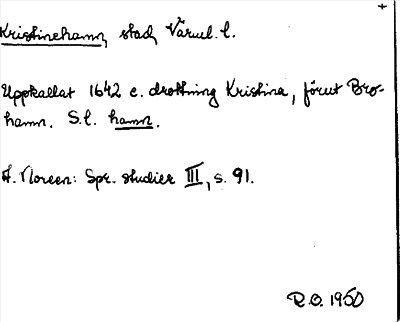 Kristinehamn, stad, Värml. l.
Uppkallat 1642 e. drottning Kristina, förut Bro-
hamn. S.l. hamn.
A. Noreen: Spr. studier III, s. 91.
R.O. 1950